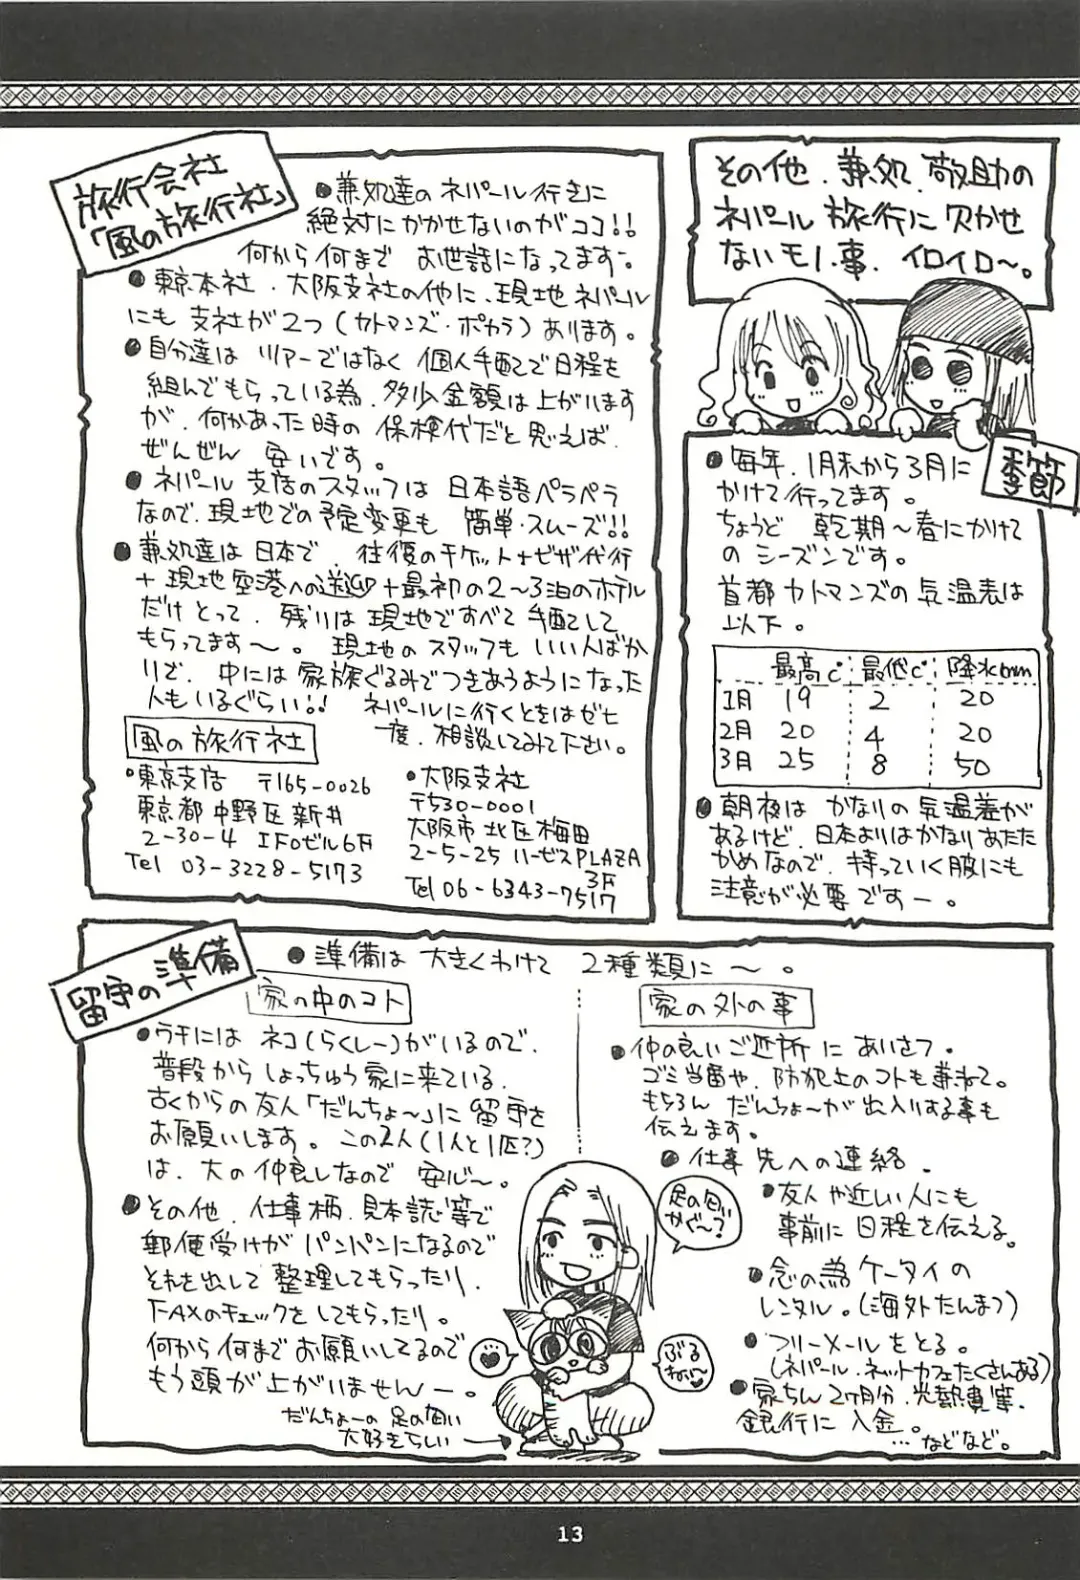 その他、兼処、敬助の
ネパール旅行に欠かせ
ないモノ・事、イロイロ〜。
旅行会社
「風の旅行社」
●兼処達のネパール行きに
絶対にかかせないのがココ!!
何から何まで お世話になってます-。
●東京本社、大阪支社の他に、現地ネパール
にも支社が2つ(カトマンズ・ポカラ)あります。
●自分達は ツアーではなく 個人手配で日程を
組んでもらっている為、多少金額は上がります
が、何かあった時の 保険代だと思えば、
ぜんぜん 安いです。
●ネパール支店のスタッフは 日本語ペラペラ
なので、現地での予定変更も 簡単・スムーズ!!
●兼処達は日本で、往復のチケット+ビザ代行
+現地空港への送迎+最初の2〜3泊のホテル
だけとって、残りは現地ですべて手配して
もらってます〜。現地のスタッフも いい人ばか
りで、中には家族ぐるみでつきあうようになった
人もいるぐらい!! ネパールに行くときはゼヒ
一度、相談してみて下さい。
風の旅行社
•東京支店 〒165-0026
東京都中野区新井
2-30-4 IFOビル6F
Tel 03-3228-5173
•大阪支社
〒530-0001
大阪市北区梅田
2-5-25 ハービスPLAZA
3F
Tel 06-6343-7517
季節
●毎年、1月末から3月に
かけて行ってます。
ちょうど 乾期〜春にかけて
のシーズンです。
首都カトマンズの気温表は
以下。
最高℃ 最低℃ 降水mm
1月 19 2 20
2月 20 4 20
3月 25 8 50
●朝夜は かなりの気温差が
あるけど、日本よりはかなりあたた
かめなので、持っていく服にも
注意が必要ですー。
留守の準備
●準備は 大きくわけて 2種類に〜。
家の中のコト
●ウチには ネコ(らくしー)がいるので、
普段からしょっちゅう家に来ている、
古くからの友人「だんちょ〜」に 留守を
お願いします。この2人(1人と1匹?)
は、大の仲良しなので 安心〜。
●その他、仕事柄、見本誌等で
郵便受けがパンパンになるので
それを出して 整理してもらったり、
FAXのチェックをしてもらったり。
何から何までお願いしてるので
もう頭が上がりませんー。
だんちょーの足の匂い
大好きらしい
足の匂い
かぐ〜?
ぶる
ねぃ〜
家の外の事
●仲の良いご近所にあいさつ。
ゴミ当番や、防犯上のコトも兼ねて。
もちろん だんちょ〜が出入りする事も
伝えます。
●仕事先への連絡。
●友人や近しい人にも
事前に日程を伝える。
●念の為ケータイの
レンタル。(海外たんまつ)
●フリーメールをとる。
(ネパール、ネットカフェたくさんある)
●家ちん2ヶ月分、光熱費等、
銀行に入金。
…などなど。
13